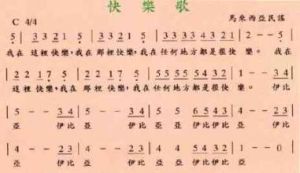 快樂歌
C 4/4 馬來西亞民謠
5 | 3 3 2 1 5 | 3 3 2 1 5 | 3 3 3 3 3 4 3 2 1 | 2 - - 5
我在 這裡快樂,我在 那裡快樂,我在任何地方都是很快樂。 我在
| 2 2 1 7 5 | 2 2 1 7 5 | 5 5 5 5 5 4 3 2 | 1 - - 3 4 |
這裡快樂,我在 那裡快樂,我在任何地方都是很快樂。 伊比
| 5 - - 3 4 | 5 - - 3 4 | 5 5 6 5 4 3 | 2 - - 2 3 |
亞 伊比 亞 伊比 亞 伊比 亞 伊比
| 4 - - 2 3 | 4 - - 2 3 | 4 4 5 4 3 2 | 1 - - 0 |
亞 伊比 亞 伊比 亞 伊比 亞